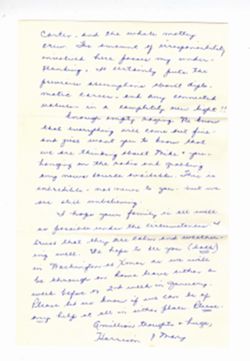 Carter - and the whole motley
crew. The amount of irresponsibility
involved here passes my under-
standing. It certainly puts the
pressure assumptions about diplo-
matic career - and any connected
nature - in a completely new light!!
Enough empty raging. We know
that everything will come out fine -
and just want you to know that
we are thinking about Mike & you -
hanging on the radio and grabbing
any news source available. This is
incredible - not news to you - but we
are still unbelieving.
I hope your family is all well
as possible under the circumstances. I
trust that they are calm and weather-
ing well. We hope to see you (both)
in Washington at Xmas as we will
be through on home leave either a
week before or 2nd week in January.
Please let us know if we can be of
any help at all in either place. Please.
A million thoughts & hugs,
Harrison & Mary